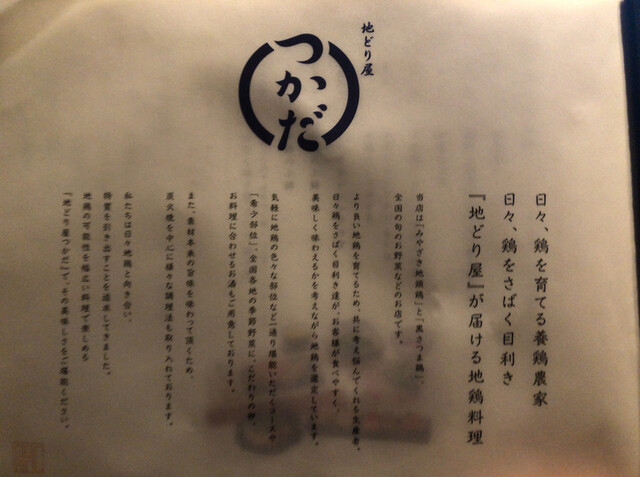 地どり屋
つかだ
日々、鶏を育てる養鶏農家
日々、鶏をさばく目利き
『地どり屋』が届ける地鶏料理
当店は『みやざき地頭鶏』と『黒さつま鶏』、
全国の旬のお野菜などのお店です。
より良い地鶏を育てるため、共に考え悩んでくれる生産者。
日々鶏をさばく目利き達が、お客様が食べやすく、
美味しく味わえるかを考えながら地鶏を選定しています。
気軽に地鶏の色々な部位など一通り堪能いただくコースや
「希少部位」、全国各地の季節野菜に、こだわりの卵、
お料理に合わせるお酒もご用意しております。
また、素材本来の旨味を味わって頂くため、
炭火焼を中心に様々な調理法も取り入れております。
私たちは日々地鶏と向き合い、
特質を引き出すことを追求してきました。
地鶏の可能性を幅広い料理で楽しめる
『地どり屋つかだ』で、その美味しさをご堪能ください。